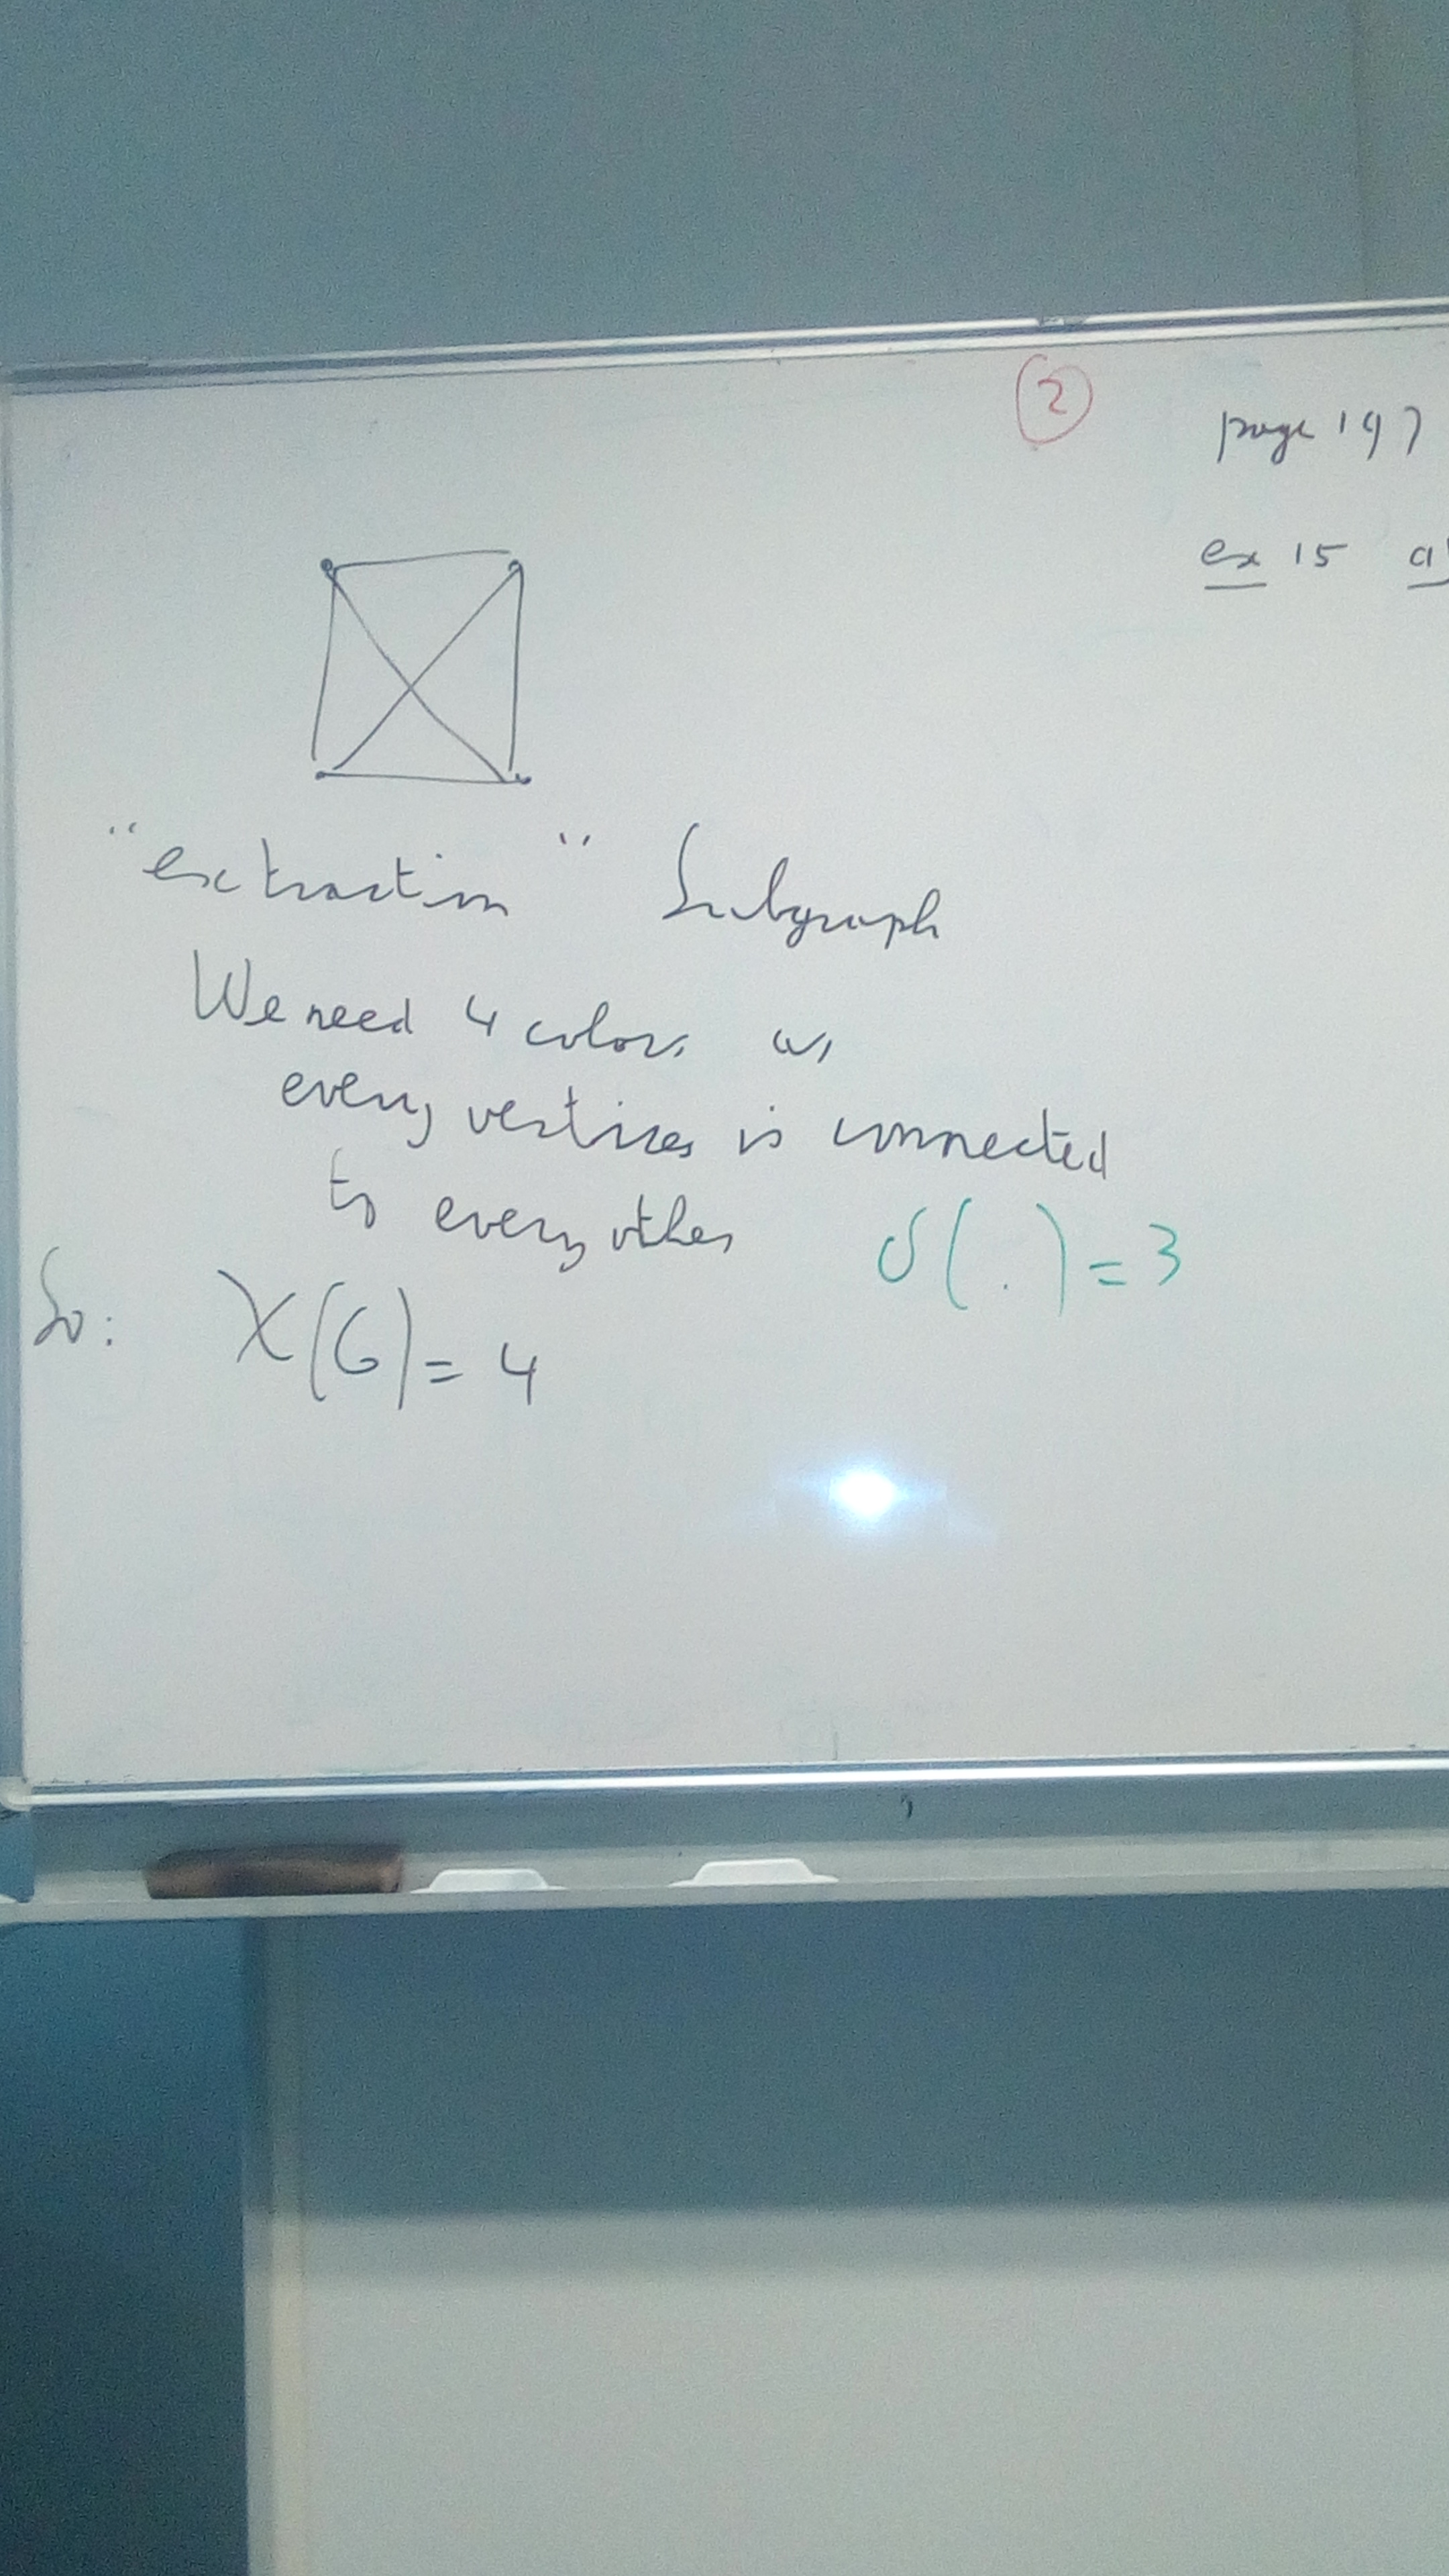 2
page 197
ex 15 a)
"extraction" Subgraph
We need 4 colors as
every vertices is connected
to every other δ(.) = 3
So: χ(G) = 4